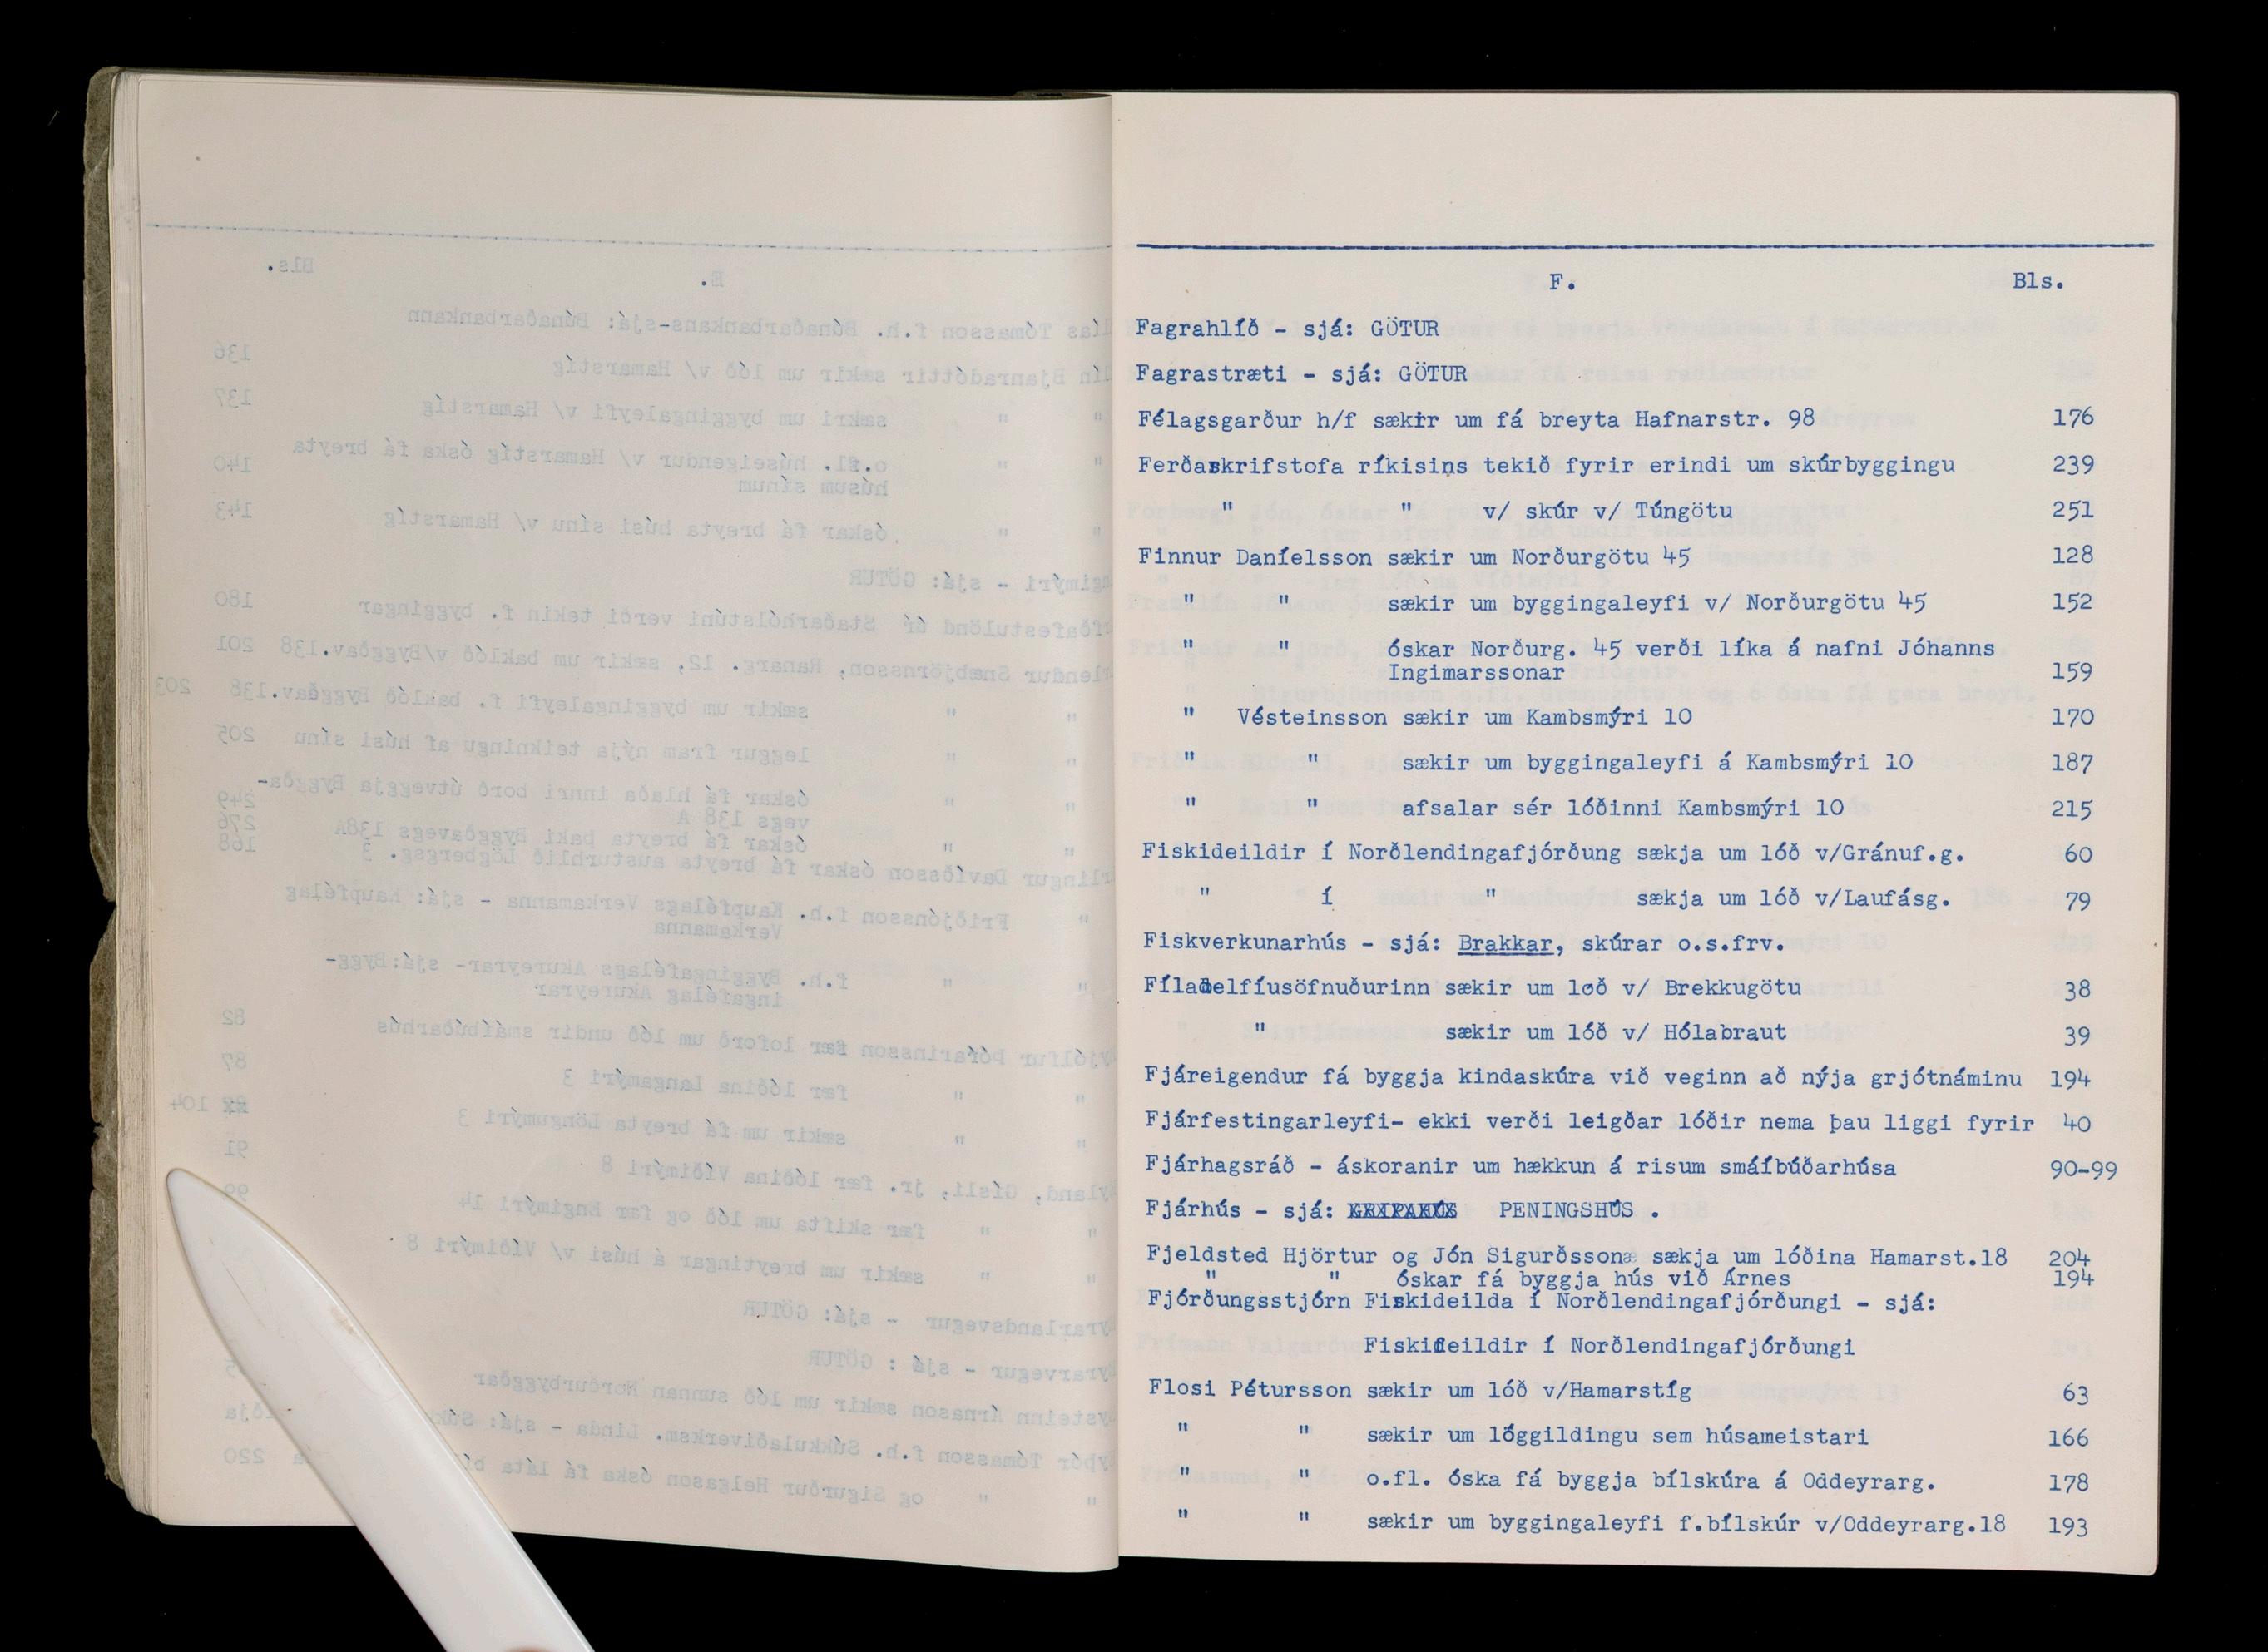 F. Bls.
Fagrahlíð - sjá: GÖTUR
Fagrastræti - sjá: GÖTUR
Félagsgarður h/f sækir um fá breyta Hafnarstr. 98 176
Ferðaskrifstofa ríkisins tekið fyrir erindi um skúrbyggingu 239
" " v/ skúr v/ Túngötu 251
Finnur Daníelsson sækir um Norðurgötu 45 128
" " sækir um byggingaleyfi v/ Norðurgötu 45 152
" " óskar Norðurg. 45 verði líka á nafni Jóhanns
Ingimarssonar 159
" Vésteinsson sækir um Kambsmýri 10 170
" " sækir um byggingaleyfi á Kambsmýri 10 187
" " afsalar sér lóðinni Kambsmýri 10 215
Fiskideildir í Norðlendingafjórðung sækja um lóð v/Gránuf.g. 60
" í " sækja um lóð v/Laufásg. 79
Fiskverkunarhús - sjá: Brakkar, skúrar o.s.frv.
Fíladelfíusöfnuðurinn sækir um loð v/ Brekkugötu 38
" sækir um lóð v/ Hólabraut 39
Fjáreigendur fá byggja kindaskúra við veginn að nýja grjótnáminu 194
Fjárfestingarleyfi- ekki verði leigðar lóðir nema þau liggi fyrir 40
Fjárhagsráð - áskoranir um hækkun á risum smáíbúðarhúsa 90-99
Fjárhús - sjá: PENINGSHÚS .
Fjeldsted Hjörtur og Jón Sigurðssonæ sækja um lóðina Hamarst.18 204
" " óskar fá byggja hús við Árnes 194
Fjórðungsstjórn Fiskideilda í Norðlendingafjórðungi - sjá:
Fiskideildir í Norðlendingafjórðungi
Flosi Pétursson sækir um lóð v/Hamarstíg 63
" " sækir um löggildingu sem húsameistari 166
" " o.fl. óska fá byggja bílskúra á Oddeyrarg. 178
" " sækir um byggingaleyfi f.bílskúr v/Oddeyrarg.18 193